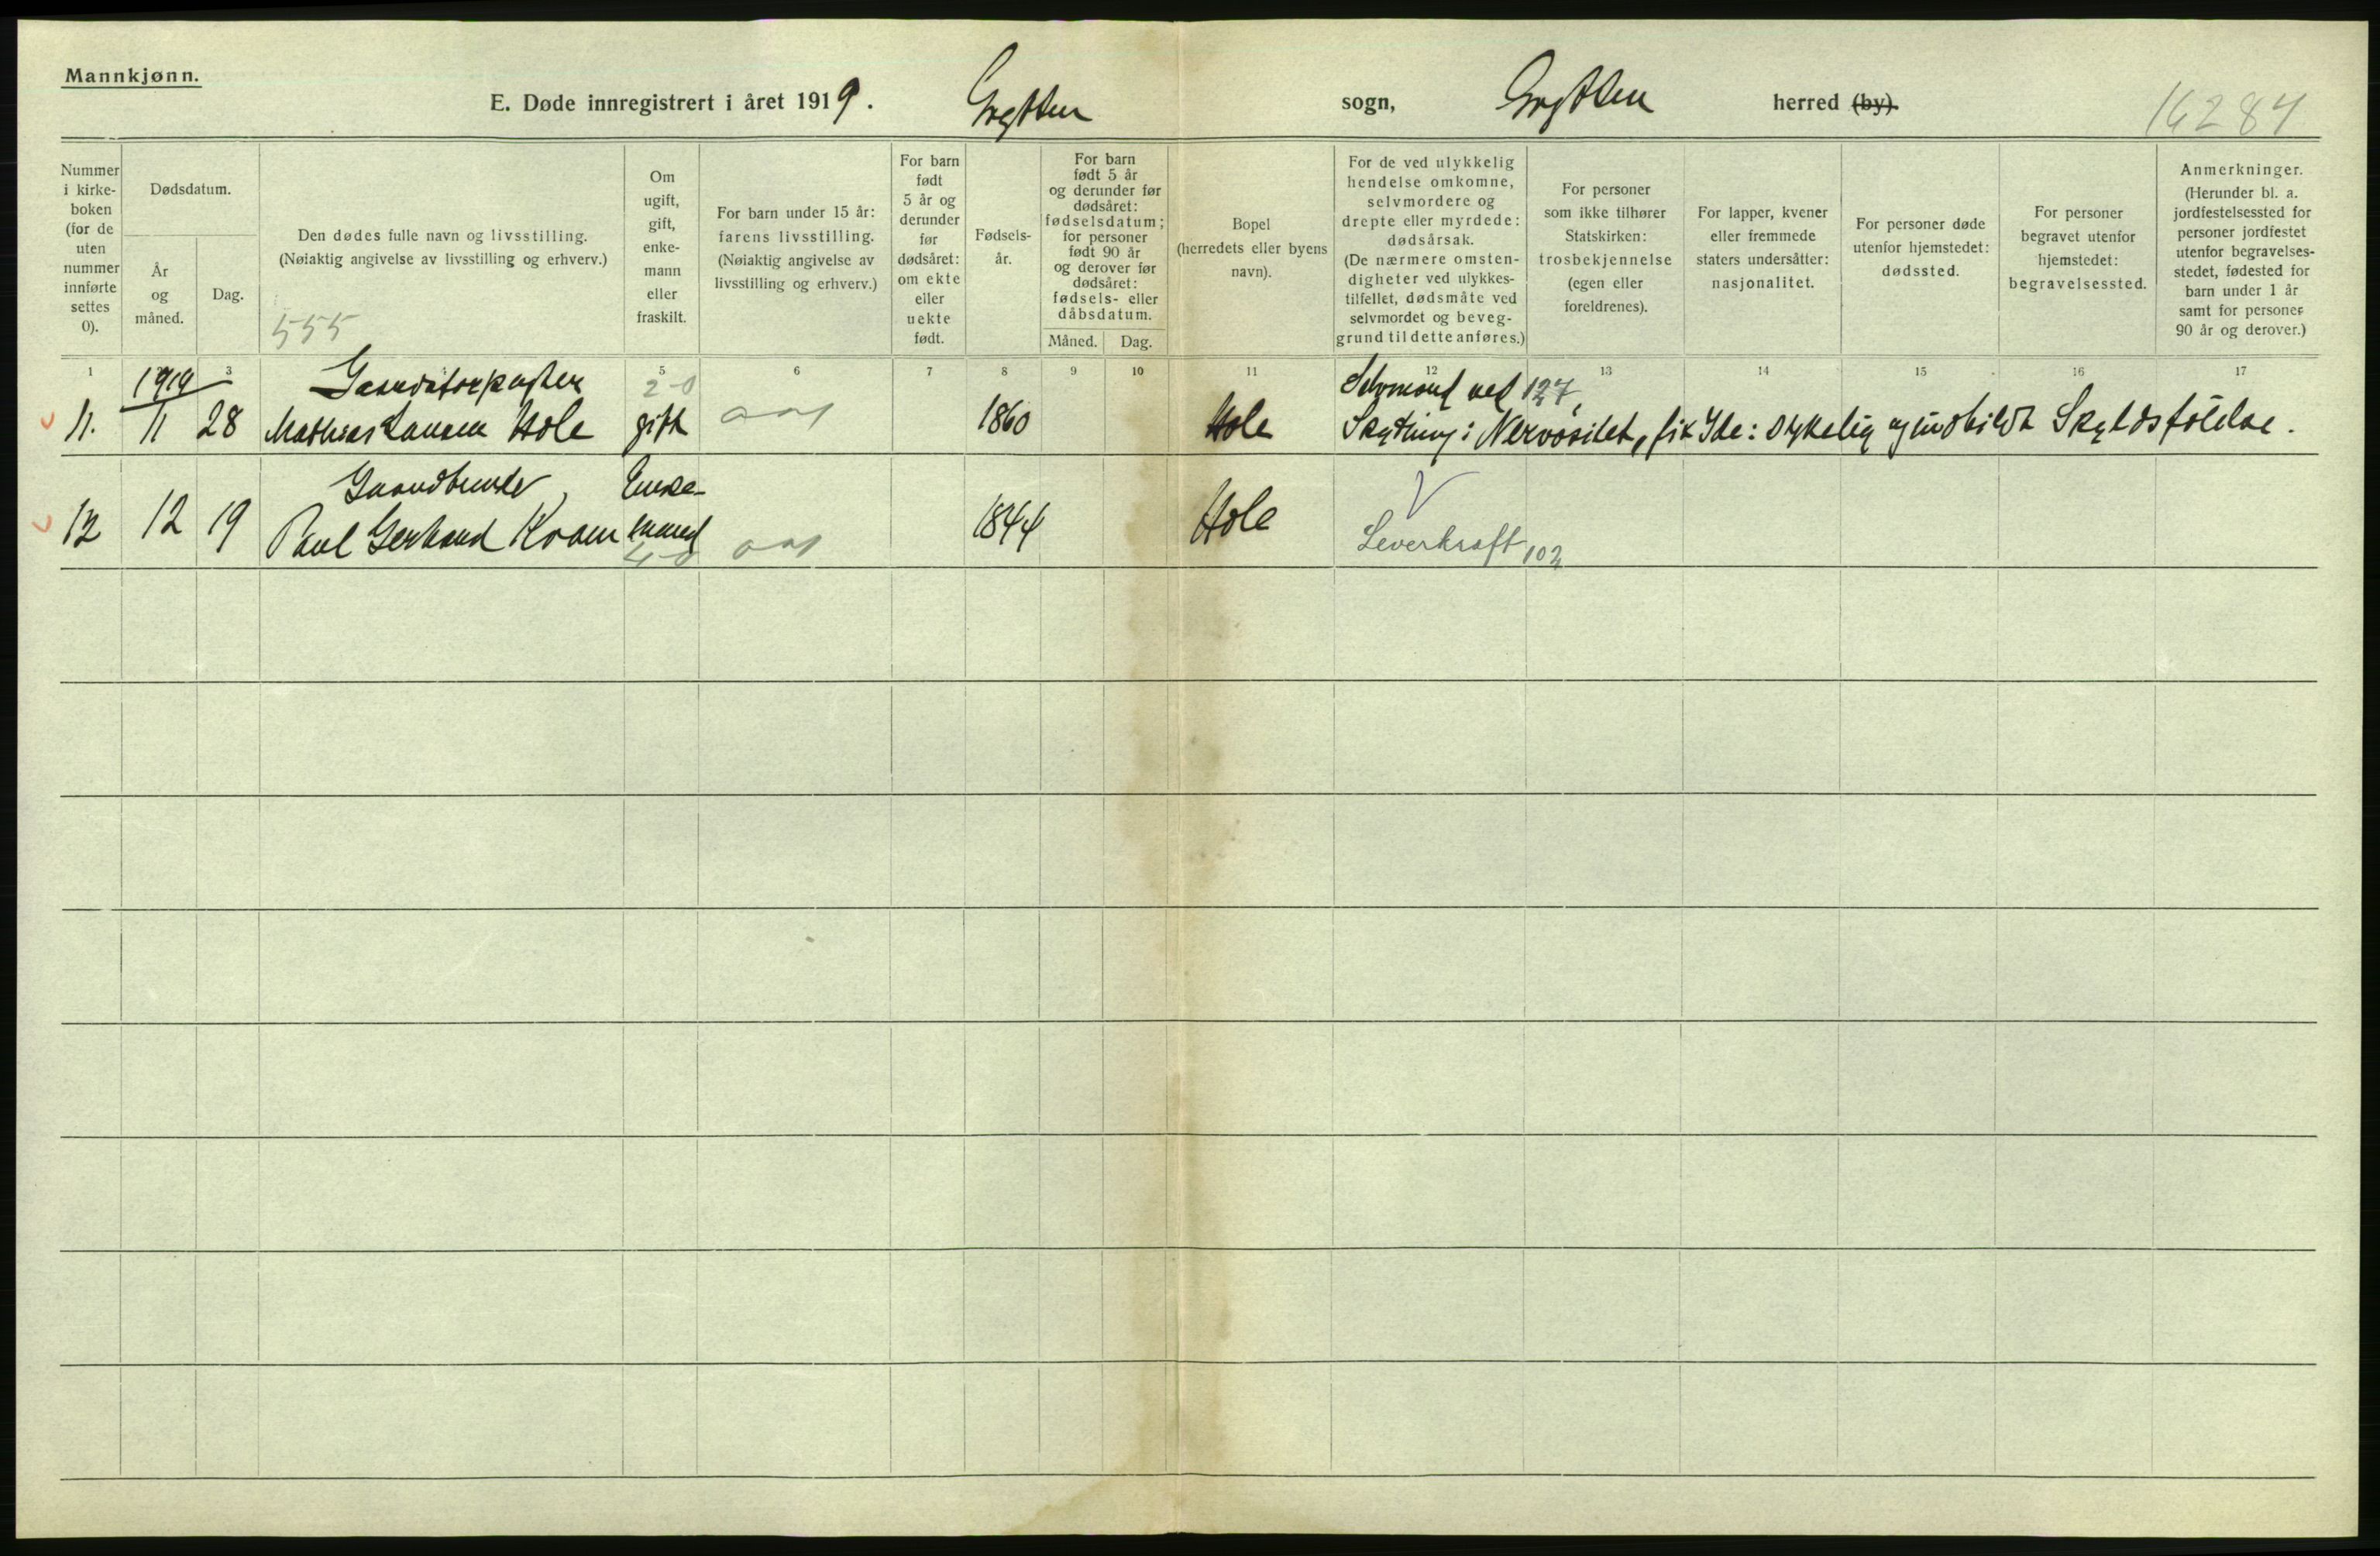 Mannkjønn.
E. Døde innregistrert i året 1919. Grytten sogn, Grytten herred (by).
16284
Nummer i kirke- boken (for de uten nummer innførte settes 0).
Dødsdatum.
År og måned.
Dag.
Den dødes fulle navn og livsstilling.
(Nøiaktig angivelse av livsstilling og erhverv.)
555
Om ugift, gift, enke- mann eller fraskilt.
For barn under 15 år: farens livsstilling.
(Nøiaktig angivelse av livsstilling og erhverv.)
For barn født 5 år og derunder før dødsåret: om ekte eller uekte født.
Fødsels- år.
For barn født 5 år og derunder før dødsåret: fødselsdatum; for personer født 90 år og derover før dødsåret: fødsels- eller dåbsdatum.
Måned.
Dag.
Bopel
(herredets eller byens navn).
For de ved ulykkelig hendelse omkomne, selvmordere og drepte eller myrdede: dødsårsak.
(De nærmere omsten- digheter ved ulykkes- tilfellet, dødsmåte ved selvmordet og beveg- grund til dette anføres.)
For personer som ikke tilhører Statskirken: trosbekjennelse (egen eller foreldrenes).
For lapper, kvener eller fremmede staters undersåtter: nasjonalitet.
For personer døde utenfor hjemstedet: dødssted.
For personer begravet utenfor hjemstedet: begravelsessted.
Anmerkninger.
(Herunder bl. a. jordfestelsessted for personer jordfestet utenfor begravelses- stedet, fødested for barn under 1 år samt for personer 90 år og derover.)
1 3 5 6 7 8 9 10 11 12 13 14 15 16 17
1919 Gaardsforpagter 2-0 Selvmord ved 127
11. 11 28 Mathias Larsen Hole gift 1860 Hole Skydning: Nervøsitet, fik Ide: Sykelig og indbildt Skyldsfølelse.
Gaardbruker, Enke-
12 12 19 Paul Gerhard Kvam mand 1844 Hole
4-0 Leverkræft 102